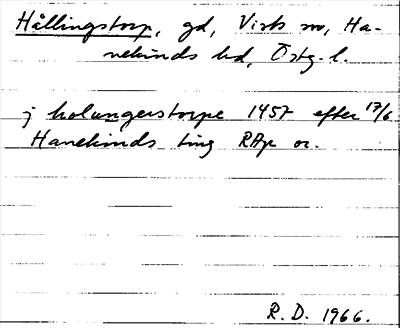 Hållingstorp, gd, Vists sn, Ha-
nekinds hd, Östg. l.
j holungerstorpe 1457 efter 17/6
Hanekinds ting RAp or.
R. D. 1966.